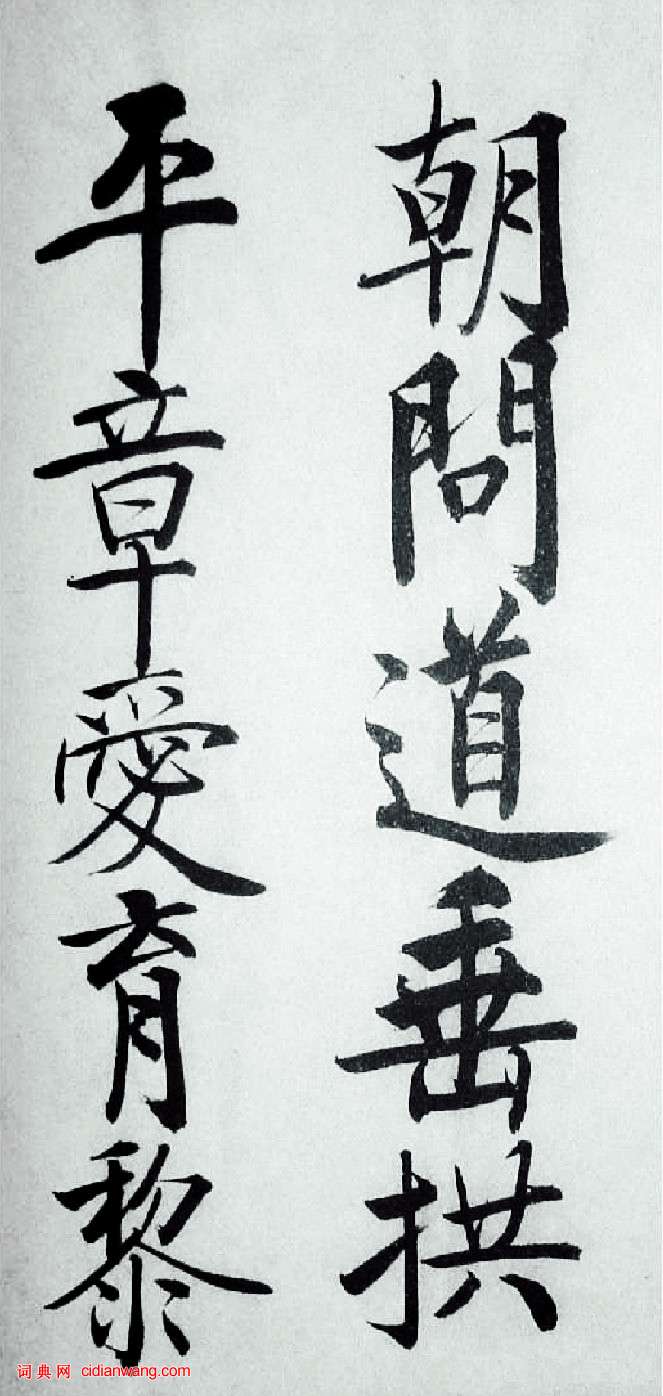 朝問道垂拱
平章愛育黎
词典网 cidianwang.com